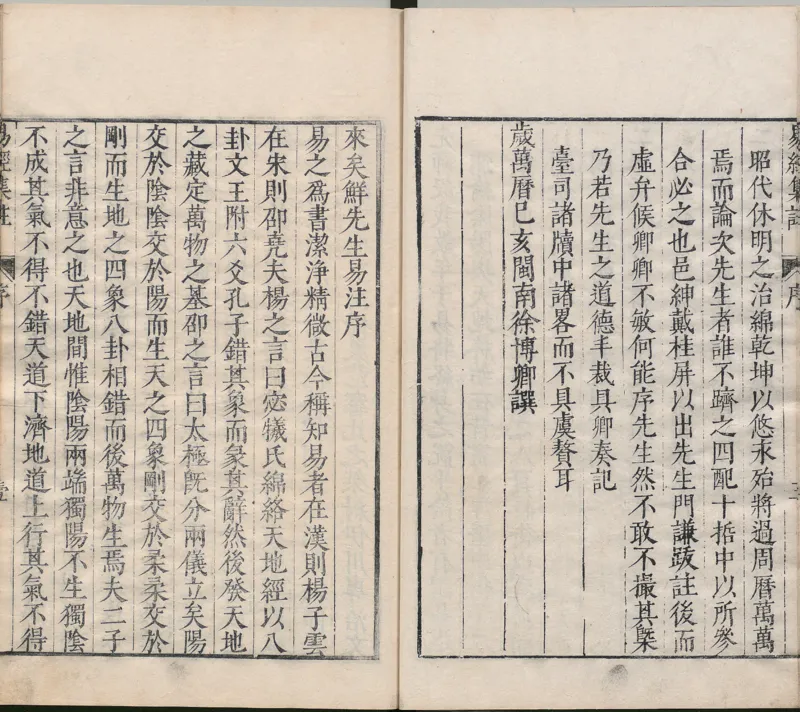 昭代休明之治綿乾坤以悠永殆將過周曆萬萬
焉而論次先生者誰不躋之四配十哲中以所參
合必之也邑紳戴桂屏以出先生門謙跋註後而
虛弁候卿卿不敏何能序先生然不敢不撮其槩
乃若先生之道德丰裁具卿奏記
臺司諸牘中諸畧而不具虞贅耳
歲萬曆己亥閩南徐博卿譔
易經集註
序
來矣鮮先生易注序
易之爲書潔淨精微古今稱知易者在漢則楊子雲
在宋則邵堯夫楊之言曰宓犧氏綿絡天地經以八
卦文王附六爻孔子錯其象而彖其辭然後發天地
之藏定萬物之基邵之言曰太極旣分兩儀立矣陽
交於陰陰交於陽而生天之四象剛交於柔柔交於
剛而生地之四象八卦相錯而後萬物生焉夫二子
之言非意之也天地間惟陰陽兩端獨陽不生獨陰
不成其氣不得不錯天道下濟地道上行其氣不得
易經集註
序
壹